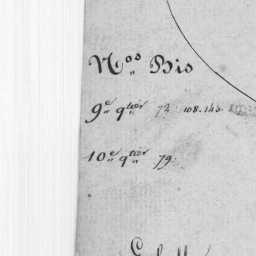 Nos Bis
9e qtier 72. 108. 145.
10e qtier 79.